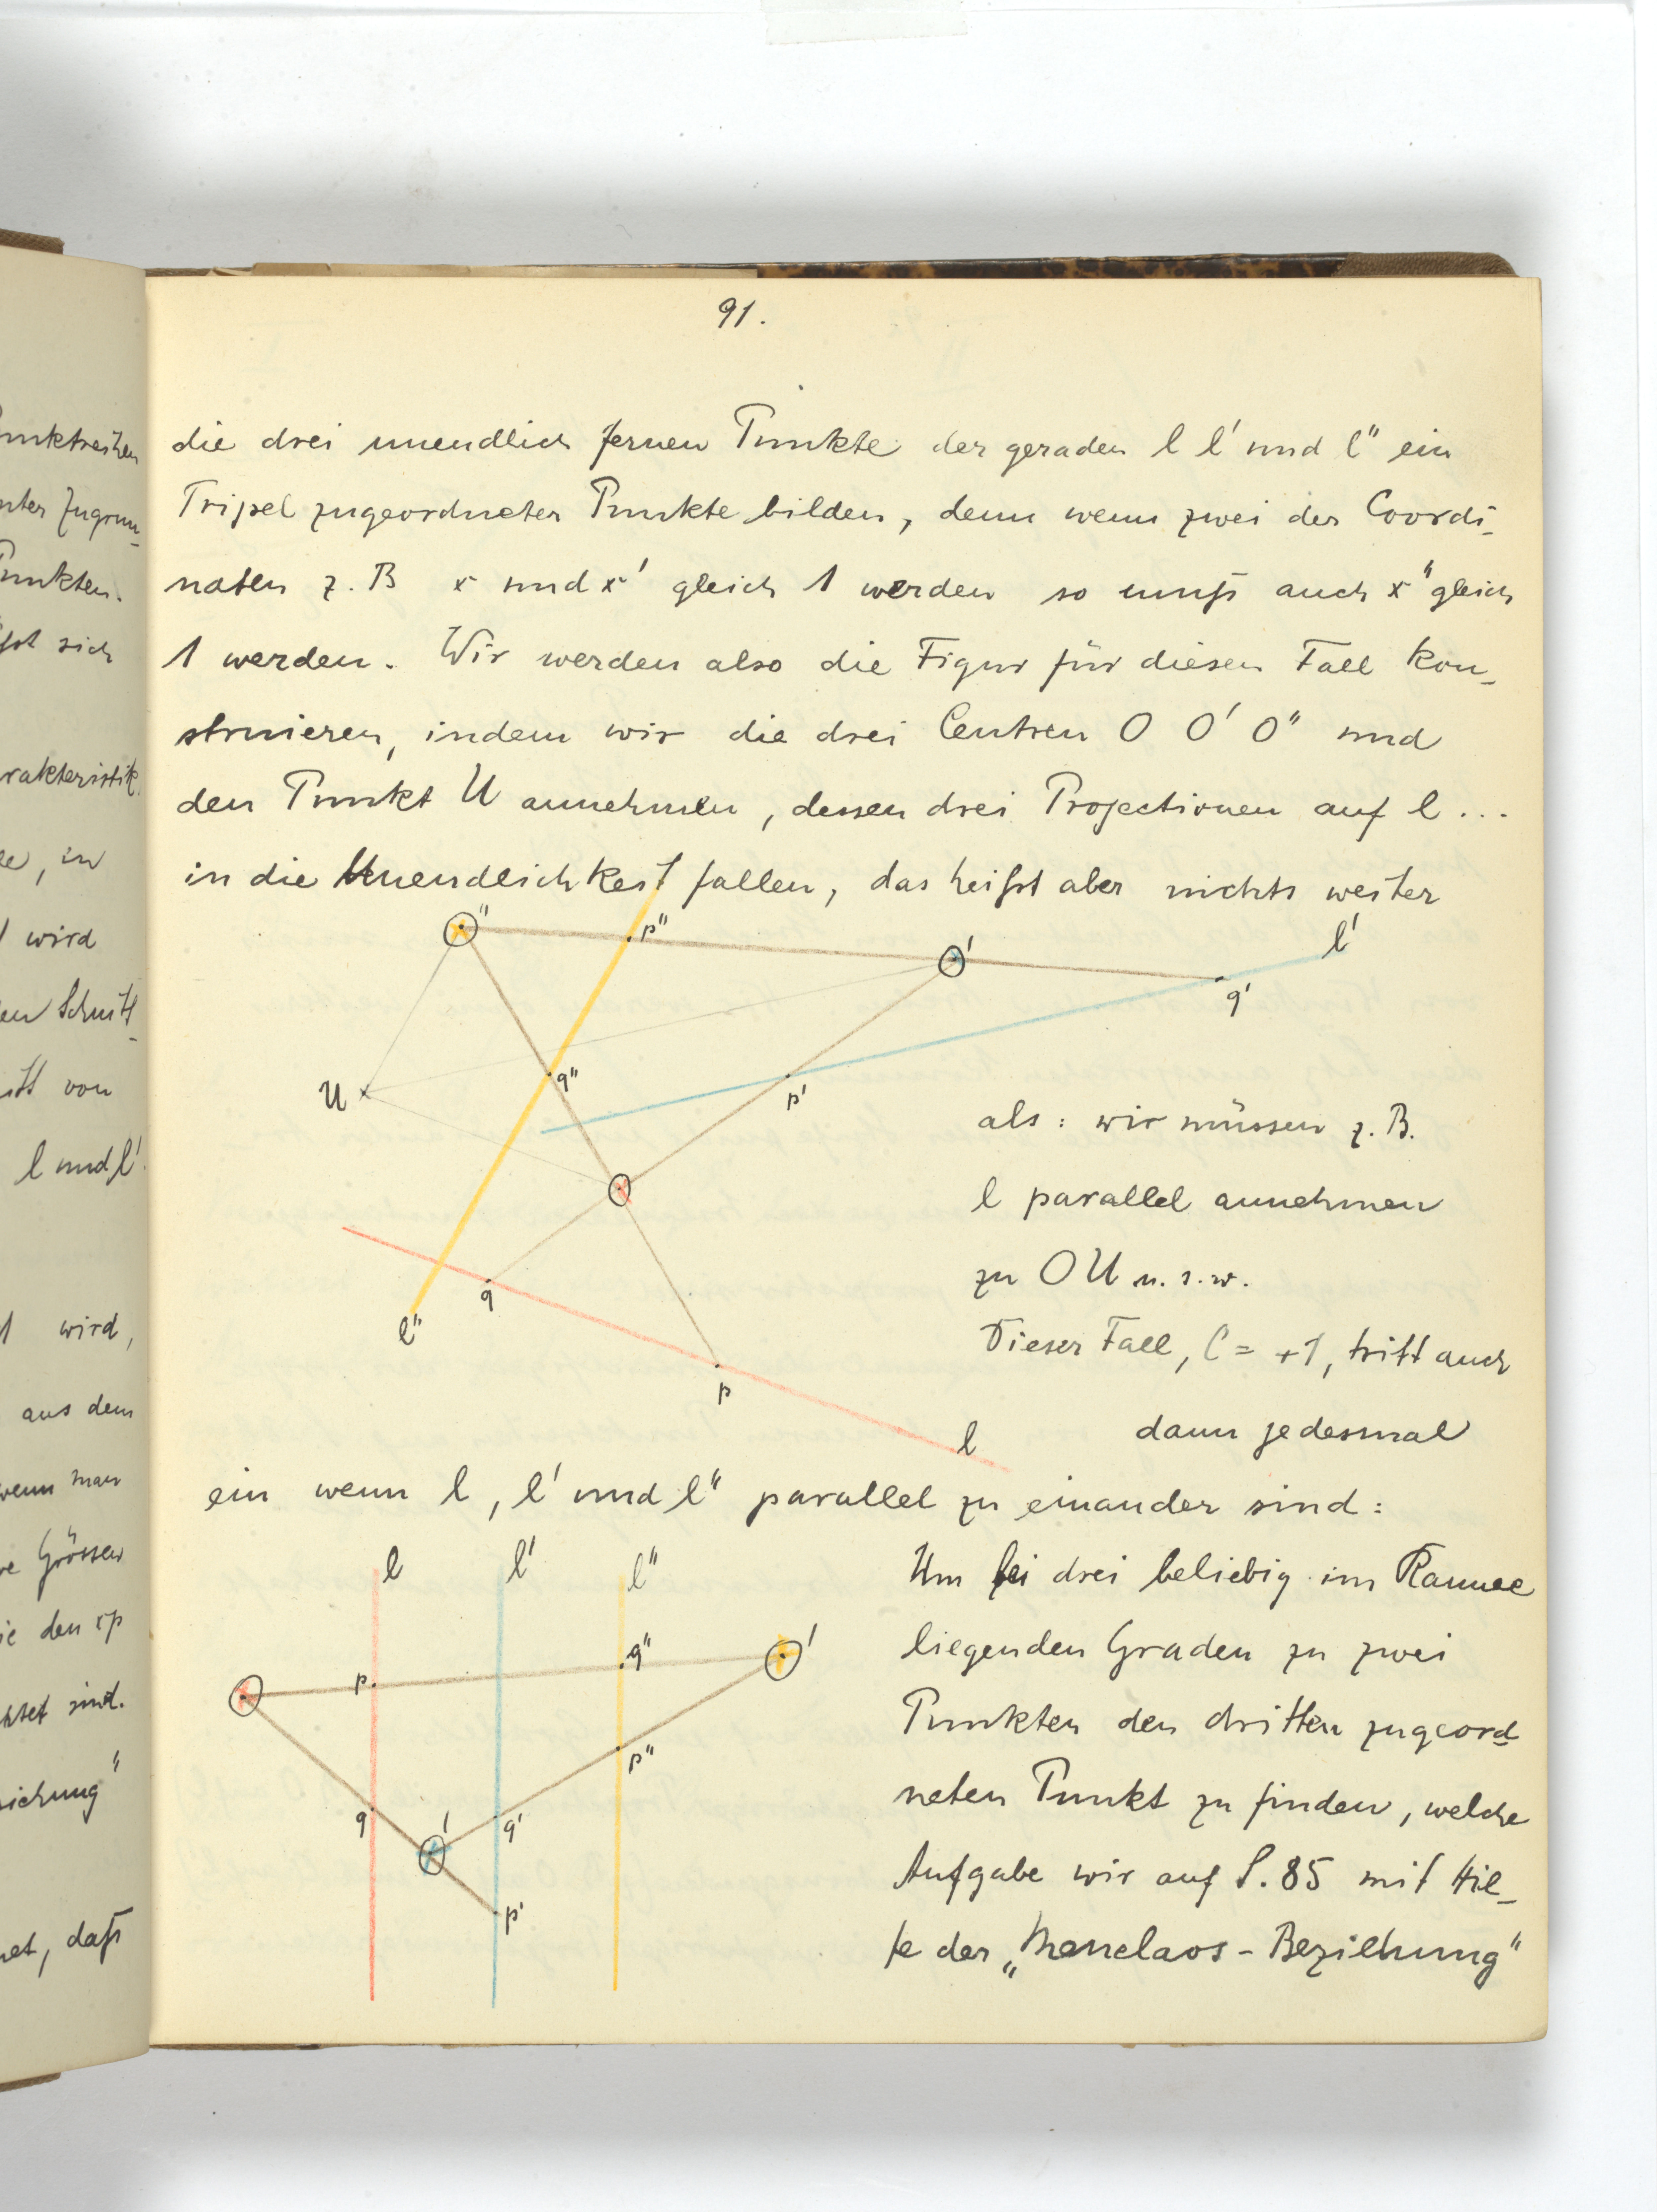 91.
die drei unendlich fernen Punkte der geraden l l' und l" ein
Tripel zugeordneter Punkte bilden, denn wenn zwei der Coordi-
naten z. B x und x' gleich 1 werden so muß auch x" gleich
1 werden. Wir werden also die Figur für diesen Fall kon-
struieren, indem wir die drei Centren O O' O" und
den Punkt U annehmen, dessen drei Projectionen auf l ...
in die Unendlichkeit fallen, das heißt aber nichts weiter
O"
p"
O'
l'
q'
U
q"
p'
O
q
l"
p
l
als: wir müssen z. B.
l parallel annehmen
zu OU u. s. w.
Dieser Fall, C = +1, tritt auch
dann jedesmal
ein wenn l, l' und l" parallel zu einander sind:
l
l'
l"
O
p
q"
O'
p"
q
O'
q'
p'
Um bei drei beliebig im Raume
liegenden Graden zu zwei
Punkten den dritten zugeord-
neten Punkt zu finden, welche
Aufgabe wir auf S. 85 mit Hil-
fe der „Menelaos-Beziehung"
unktreihen
nter Zugrun-
Punkten.
ßt sich
rakteristik
, in
wird
en Schnitt-
itt von
l und l'
1 wird,
aus dem
wenn man
re Grössen
ie den xp
chtet sind.
ziehung"
net, daß